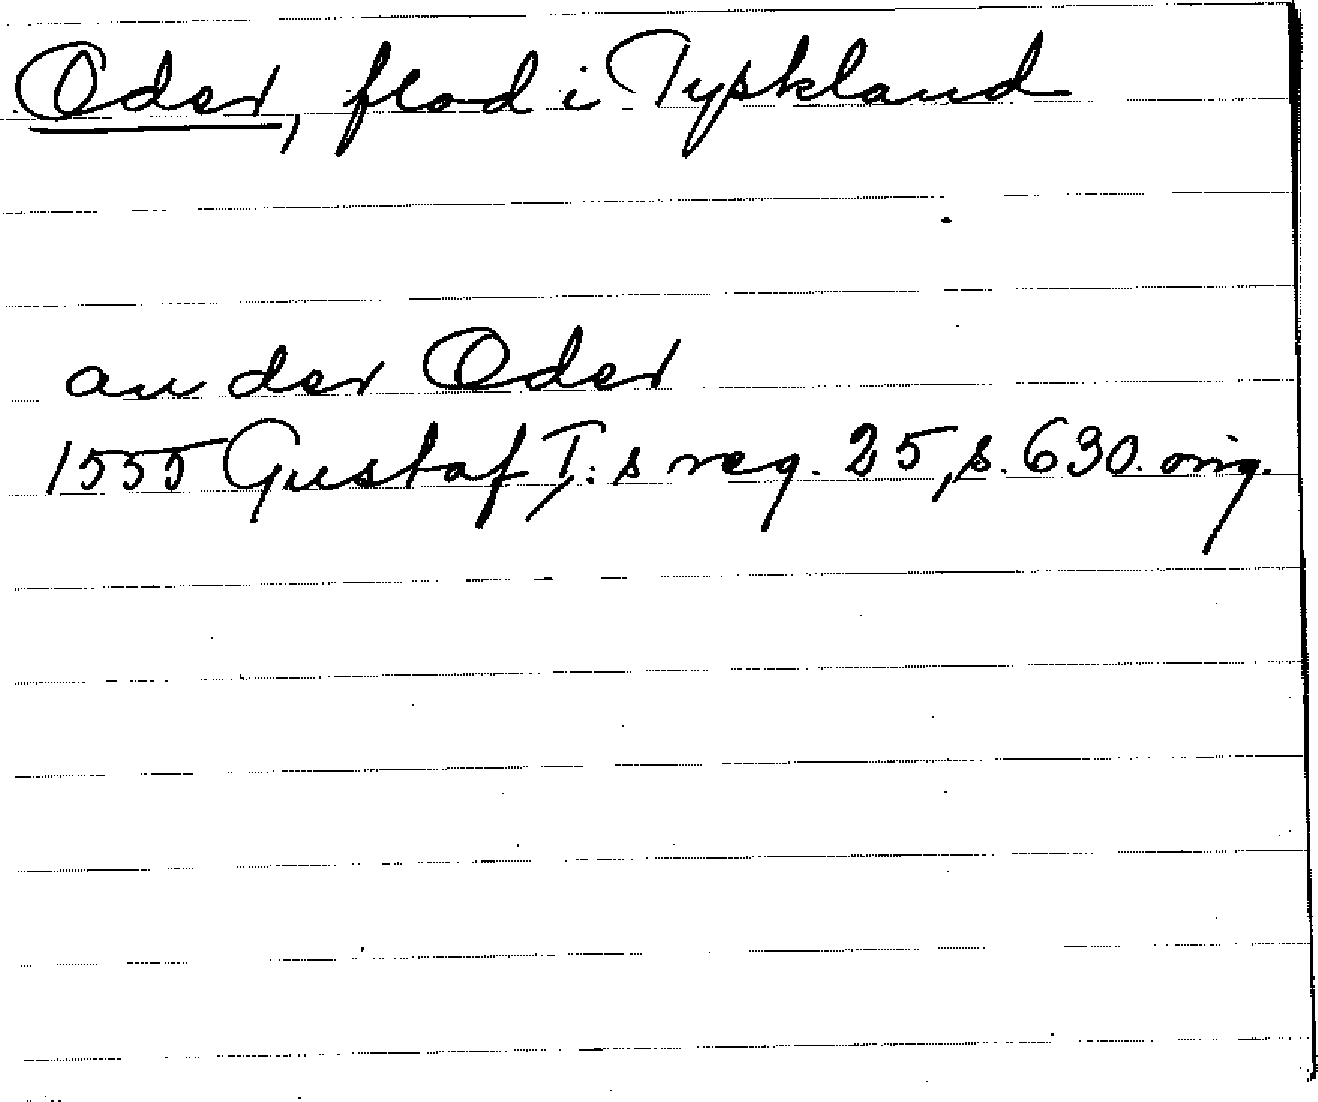 Oder, flod i Tyskland
an der Oder
1555 Gustaf I:s reg. 25, s. 630. orig.